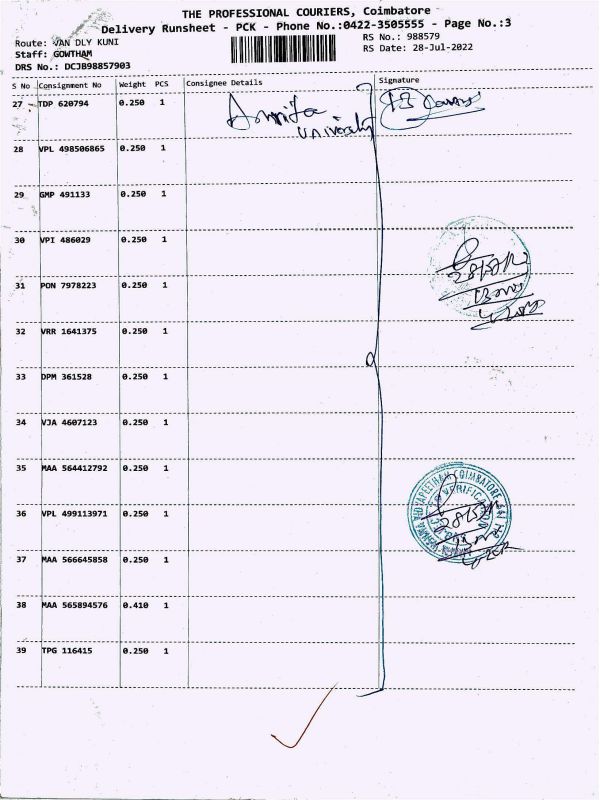 THE PROFESSIONAL COURIERS, Coimbatore
Delivery Runsheet - PCK - Phone No.:0422-3505555 - Page No.:3
Route: VAN DLY KUNI
RS No.: 988579
Staff: GOWTHAM
RS Date: 28-Jul-2022
DRS No.: DCJB98857903
S No Consignment No Weight PCS Consignee Details Signature
27 TDP 620794 0.250 1 Amrita
University
28 VPL 498506865 0.250 1
29 GMP 491133 0.250 1
30 VPI 486029 0.250 1
31 PON 7978223 0.250 1
32 VRR 1641375 0.250 1
33 DPM 361528 0.250 1
34 VJA 4607123 0.250 1
35 MAA 564412792 0.250 1
36 VPL 499113971 0.250 1
37 MAA 566645858 0.250 1
38 MAA 565894576 0.410 1
39 TPG 116415 0.250 1